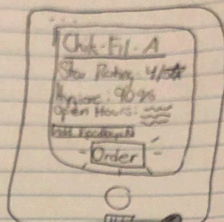 Chik-Fil-A
Star Rating: 4/5
Hygiene: 90%
Open Hours:
Order